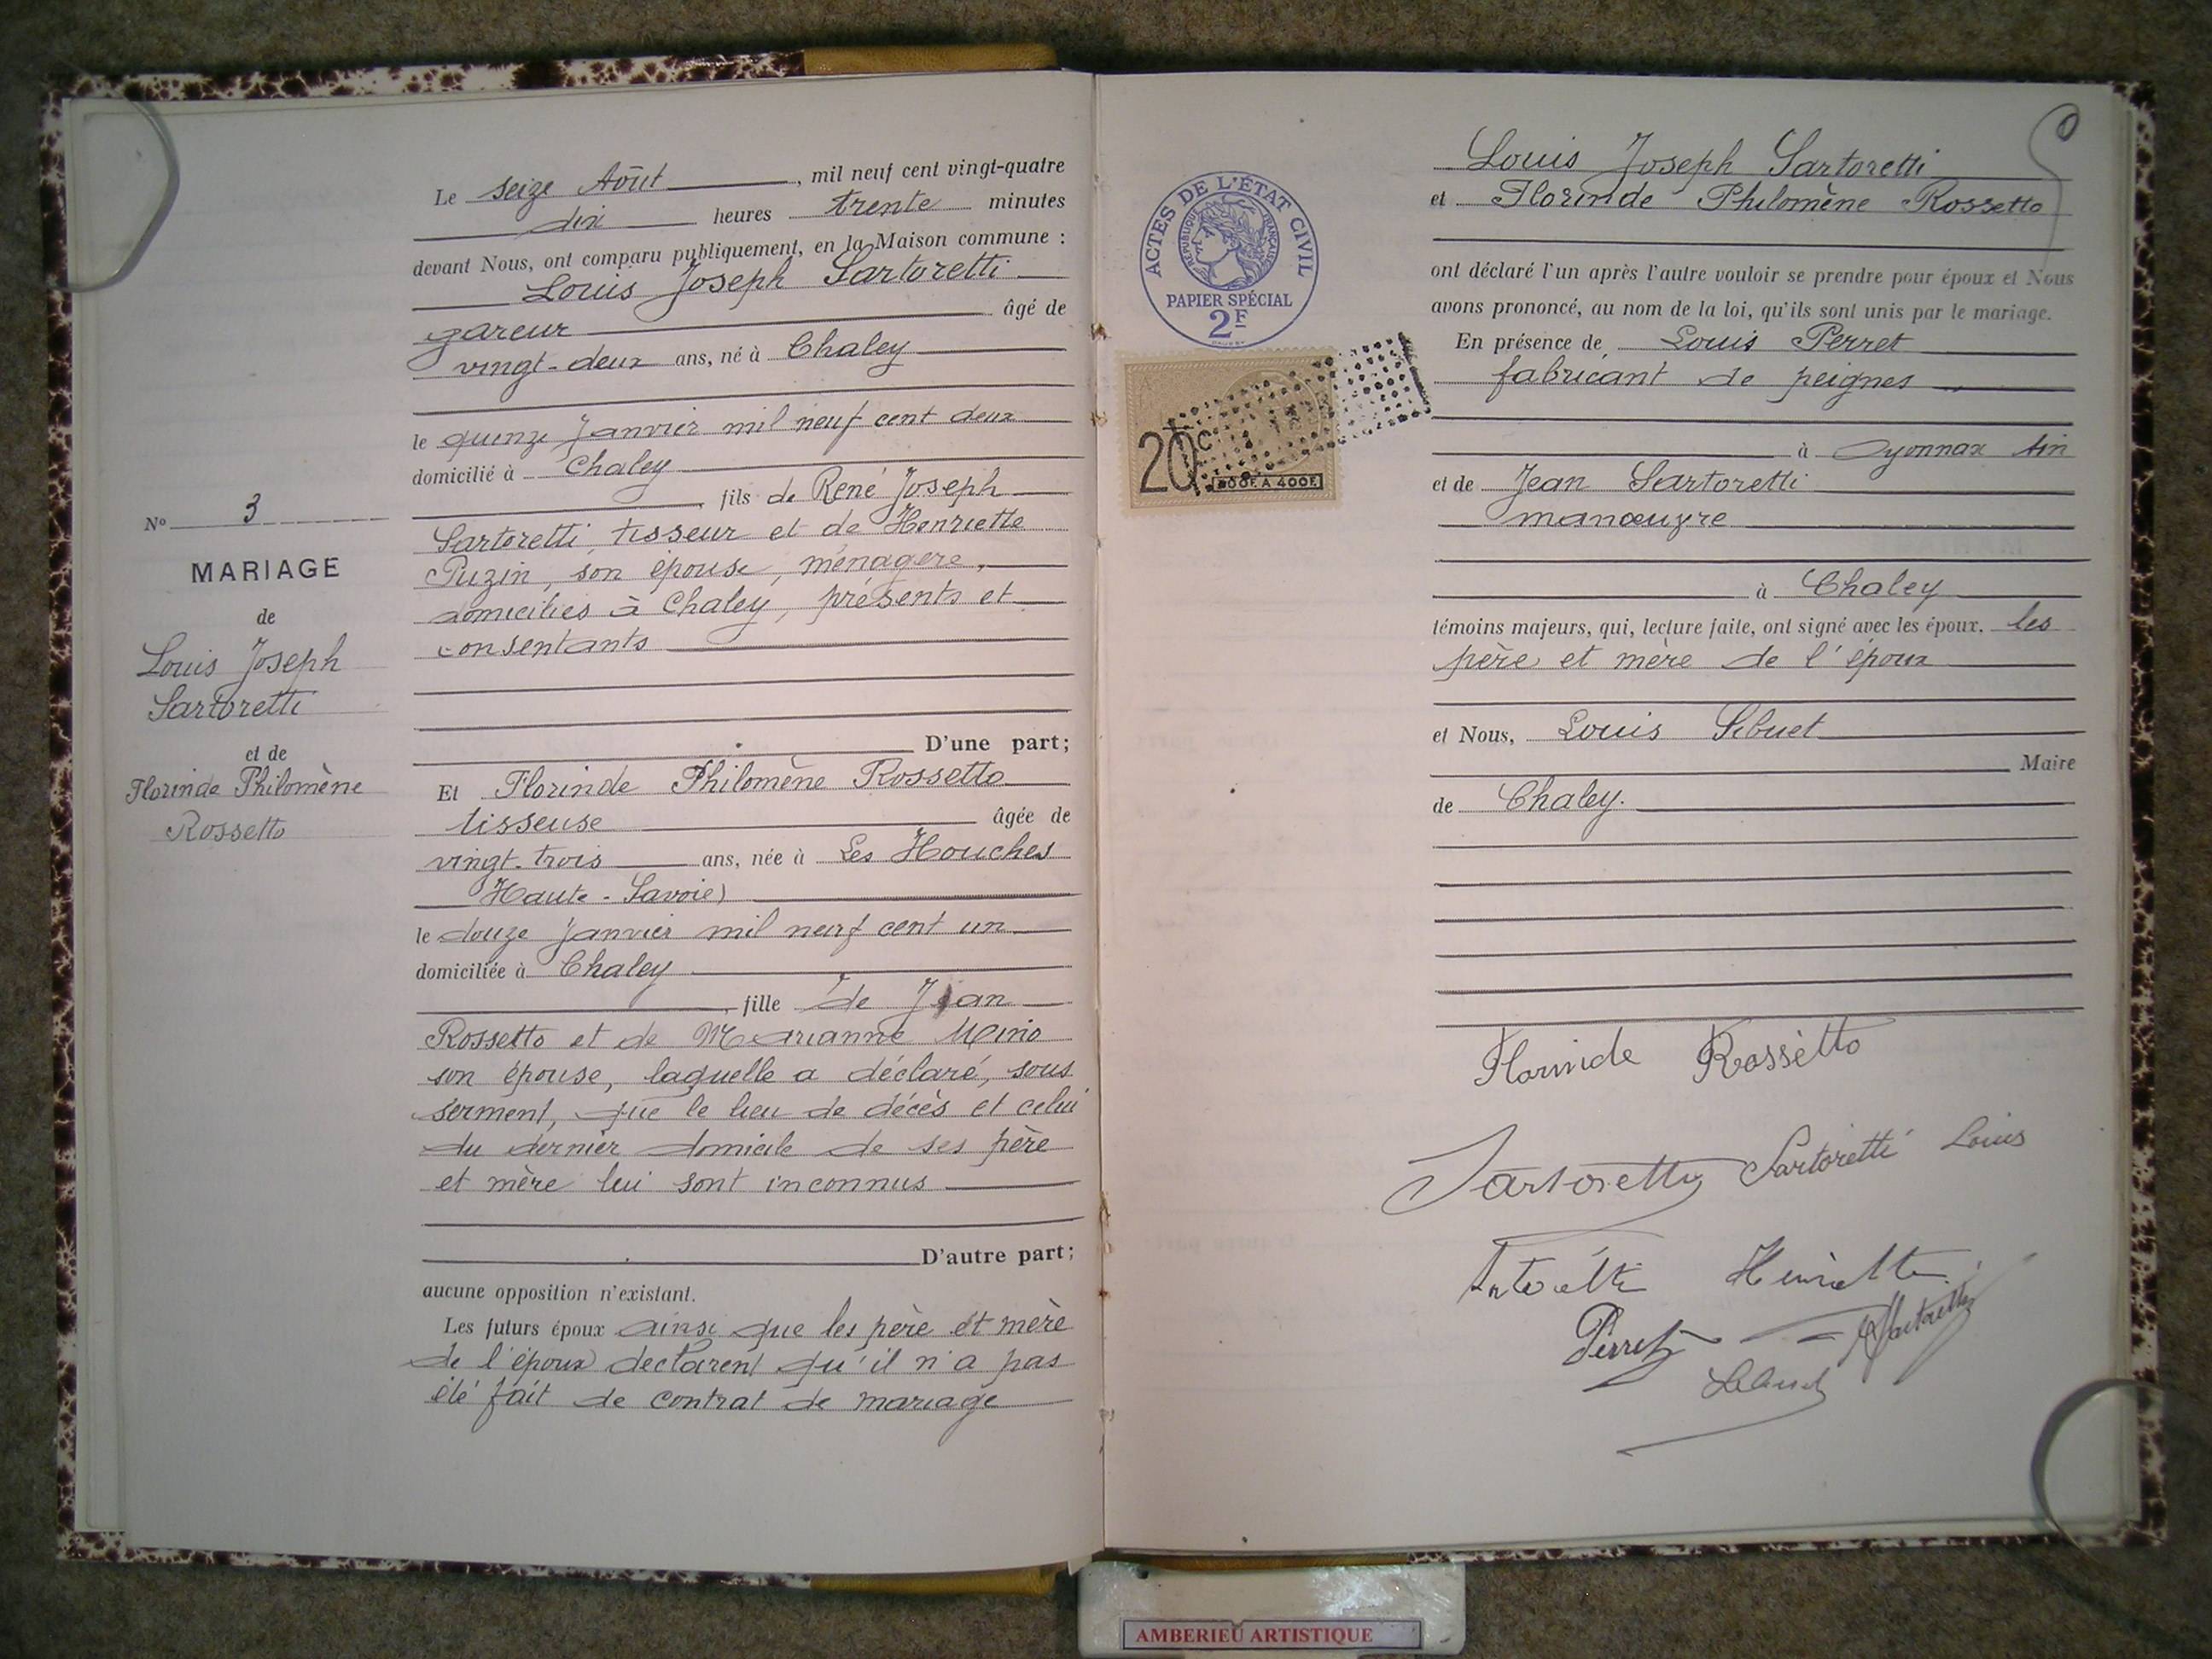 Nº 3
MARIAGE
de
Louis Joseph
Sartoretti
et de
Florinde Philomène
Rossetto
Le seize Août, mil neuf cent vingt-quatre
dix heures trente minutes
devant Nous, ont comparu publiquement, en la Maison commune :
Louis Joseph Sartoretti
gareur âgé de
vingt-deux ans, né à Chaley
le quinze Janvier mil neuf cent deux
domicilié à Chaley
, fils de René Joseph
Sartoretti, tisseur et de Henriette
Puzin, son épouse, ménagère,
domiciliés à Chaley, présents et
consentants
D'une part;
Et Florinde Philomène Rossetto
tisseuse âgée de
vingt-trois ans, née à Les Houches
Haute-Savoie)
le douze Janvier mil neuf cent un
domiciliée à Chaley
, fille de Jean
Rossetto et de Marianne Mino
son épouse, laquelle a déclaré, sous
serment, que le lieu de décès et celui
du dernier domicile de ses père
et mère lui sont inconnus
D'autre part;
aucune opposition n'existant.
Les futurs époux ainsi que les père et mère
de l'époux déclarent qu'il n'a pas
été fait de contrat de mariage
ACTES DE L'ÉTAT CIVIL
RÉPUBLIQUE FRANÇAISE
PAPIER SPÉCIAL
2F
20c
300F. A 400F.
Louis Joseph Sartoretti
et Florinde Philomène Rossetto
ont déclaré l'un après l'autre vouloir se prendre pour époux et Nous
avons prononcé, au nom de la loi, qu'ils sont unis par le mariage.
En présence de Louis Perret
fabricant de peignes
à Oyonnax Ain
et de Jean Sartoretti
manœuvre
à Chaley
témoins majeurs, qui, lecture faite, ont signé avec les époux, les
père et mère de l'époux
et Nous, Louis Sibuet
Maire
de Chaley.
Florinde Rossètto
Sartoretti Sartoretti Louis
Henriette
Perret Sartoretti
AMBERIEU ARTISTIQUE